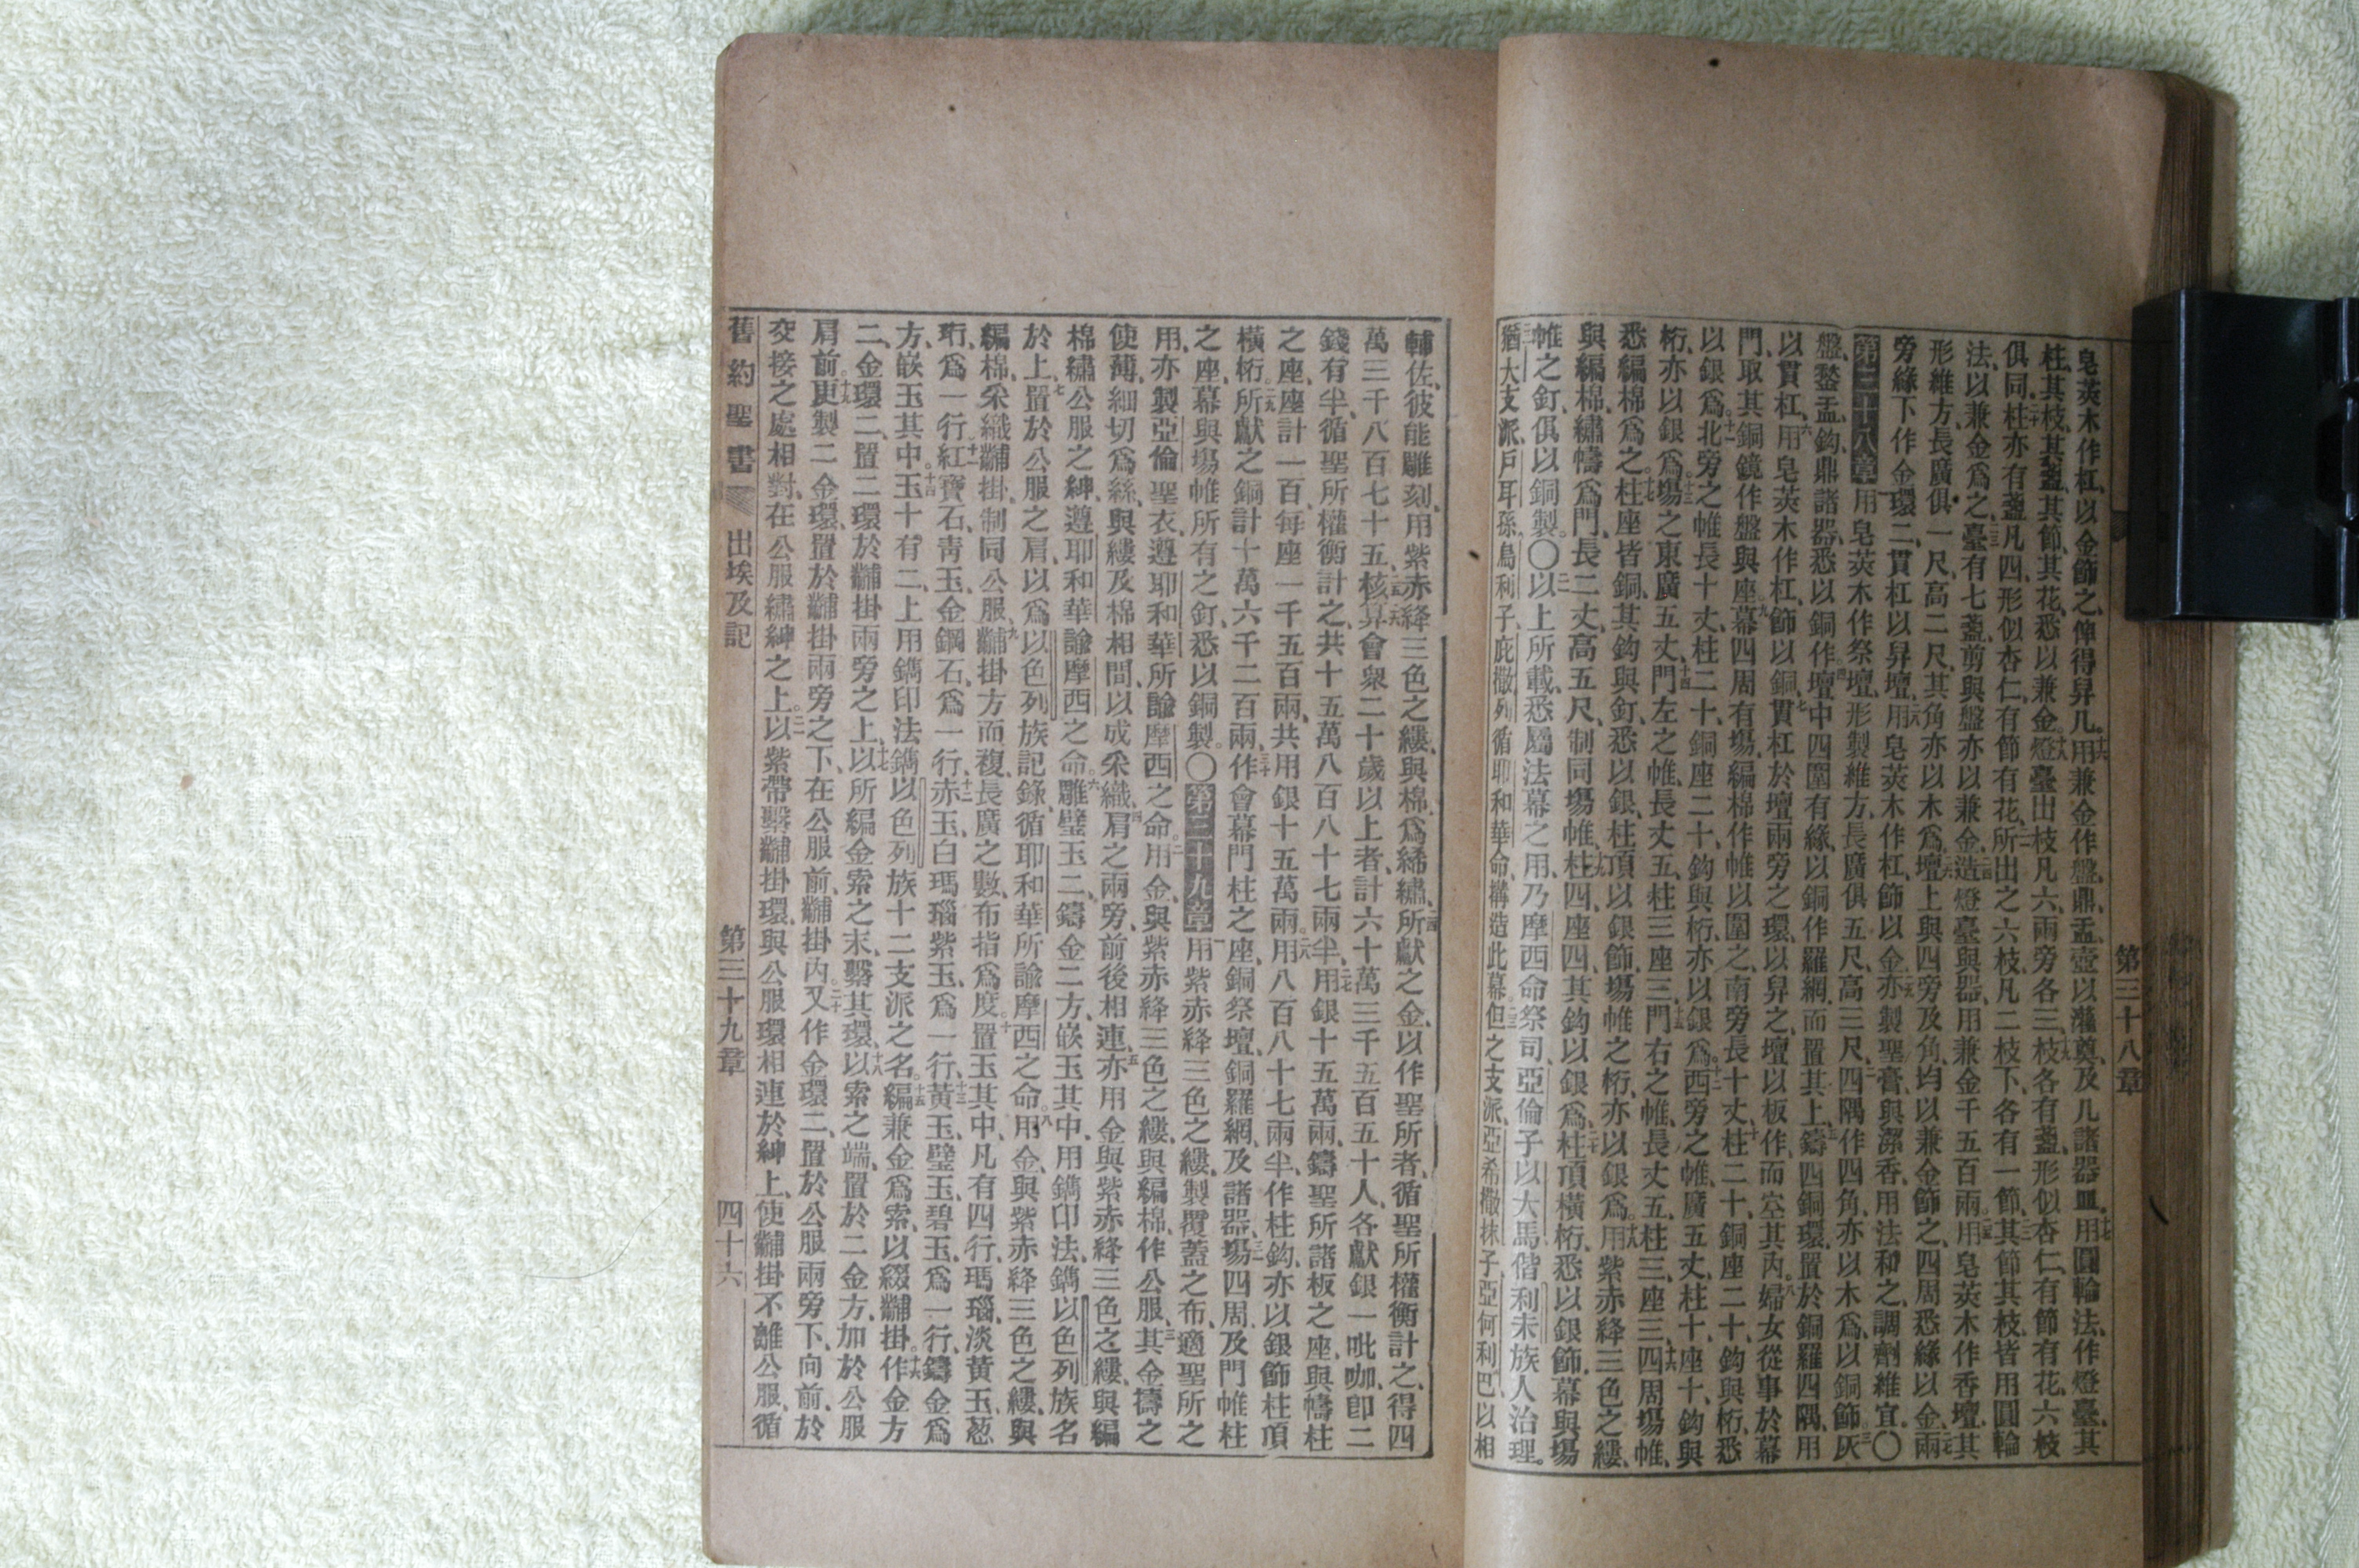 第三十八章
皂莢木作杠、以金飾之、俾得舁几。十六用兼金作盤、鼎、盂、壺、以灌奠、及几諸器皿。十七用圓輪法、作燈臺、其
柱、其枝、其盞、其節、其花、悉以兼金。十八燈臺出枝凡六、兩旁各三、十九枝各有盞、形似杏仁、有節有花、六枝
俱同。二十柱亦有盞凡四、形似杏仁、有節有花、二一所出之六枝、凡二枝下、各有一節、二二其節其枝、皆用圓輪
法、以兼金爲之、二三臺有七盞、剪與盤亦以兼金、二四造燈臺與器、用兼金千五百兩。二五用皂莢木作香壇、其
形維方、長廣俱一尺、高二尺、其角亦以木爲、二六壇上與四旁及角、均以兼金飾之、四周悉緣以金、二七兩
旁緣下作金環二、貫杠以舁壇、二八用皂莢木作杠、飾以金、二九亦製聖膏、與潔香、用法和之、調劑維宜。〇
第三十八章一用皂莢木作祭壇、形製維方、長廣俱五尺、高三尺、二四隅作四角、亦以木爲、以銅飾、三灰
盤、鍫、盂、鈎、鼎諸器、悉以銅作、四壇中四圍有緣、以銅作羅網、而置其上、五鑄四銅環、置於銅羅四隅、用
以貫杠、六用皂莢木作杠、飾以銅、七貫杠於壇兩旁之環、以舁之、壇以板作、而空其內、八婦女從事於幕
門、取其銅鏡、作盤與座。九幕四周有場、編棉作帷以圍之、南旁長十丈、十柱二十、銅座二十、鈎與桁、悉
以銀爲。十一北旁之帷長十丈、柱二十、銅座二十、鈎與桁、亦以銀爲。十二西旁之帷、廣五丈、柱十、座十、鈎與
桁、亦以銀爲。十三場之東廣五丈、十四門左之帷長丈五、柱三座三、十五門右之帷、長丈五、柱三、座三、十六四周場帷、
悉編棉爲之。十七柱座皆銅、其鈎與釘、悉以銀、柱頂以銀飾、場帷之桁、亦以銀爲。十八用紫赤絳三色之縷、
與編棉、繡幬爲門、長二丈、高五尺、制同場帷、十九柱四、座四、其鈎以銀爲、二十柱頂橫桁、悉以銀飾、幕與場
帷之釘、俱以銅製。〇二一以上所載、悉屬法幕之用、乃摩西命祭司亞倫子以大馬、偕利未族人治理。
二二猶大支派、戶耳孫、烏利子、庇撒列、循耶和華命、構造此幕。二三但之支派、亞希撒抹子、亞何利巴、以相
輔佐、彼能雕刻、用紫赤絳三色之縷、與棉、爲絺繡。二四所獻之金、以作聖所者、循聖所權衡計之、得四
萬三千八百七十五、二五二六核算會衆、二十歲以上者、計六十萬三千五百五十人、各獻銀一吡咖、卽二
錢有半、循聖所權衡計之、共十五萬八百八十七兩半、二七用銀十五萬兩、鑄聖所諸板之座、與幬柱
之座、座計一百、每座一千五百兩、共用銀十五萬兩、二八用八百八十七兩半、作柱鈎、亦以銀飾柱頂
橫桁。二九所獻之銅、計十萬六千二百兩、三十作會幕門柱之座、銅祭壇、銅羅網、及諸器、三一場四周及門帷柱
之座、幕與場帷所有之釘、悉以銅製。〇第三十九章一用紫赤絳三色之縷、製覆蓋之布、適聖所之
用、亦製亞倫聖衣、遵耶和華所諭摩西之命。二用金、與紫赤絳三色之縷、與編棉、作公服、三其金擣之
使薄、細切爲絲、與縷及棉相間、以成采織、四肩之兩旁、前後相連、五亦用金與紫赤絳三色之縷、與編
棉、繡公服之紳、遵耶和華諭摩西之命。六雕璧玉二、鑄金二方、嵌玉其中、用鐫印法、鐫以色列族名
於上、七置於公服之肩、以爲以色列族記錄、循耶和華所諭摩西之命。八用金、與紫赤絳三色之縷、與
編棉、采織黼掛、制同公服、九黼掛方而複、長廣之數、布指爲度。十置玉其中、凡有四行、瑪瑙、淡黃玉、葱
珩、爲一行、十一紅寶石、靑玉、金鋼石、爲一行、十二赤玉、白瑪瑙、紫玉、爲一行、十三黃玉、璧玉、碧玉、爲一行、鑄金爲
方、嵌玉其中。十四玉十有二、上用鐫印法、鐫以色列族十二支派之名。十五編兼金爲索、以綴黼掛。十六作金方
二、金環二、置二環於黼掛兩旁之上、十七以所編金索之末、繫其環、十八以索之端、置於二金方、加於公服
肩前。十九更製二金環、置於黼掛兩旁之下、在公服前、黼掛內。二十又作金環二、置於公服兩旁下向前、於
交接之處相對、在公服繡紳之上。二一以紫帶繫黼掛環、與公服環相連於紳上、使黼掛不離公服、循
舊約聖書 出埃及記 第三十九章 四十六